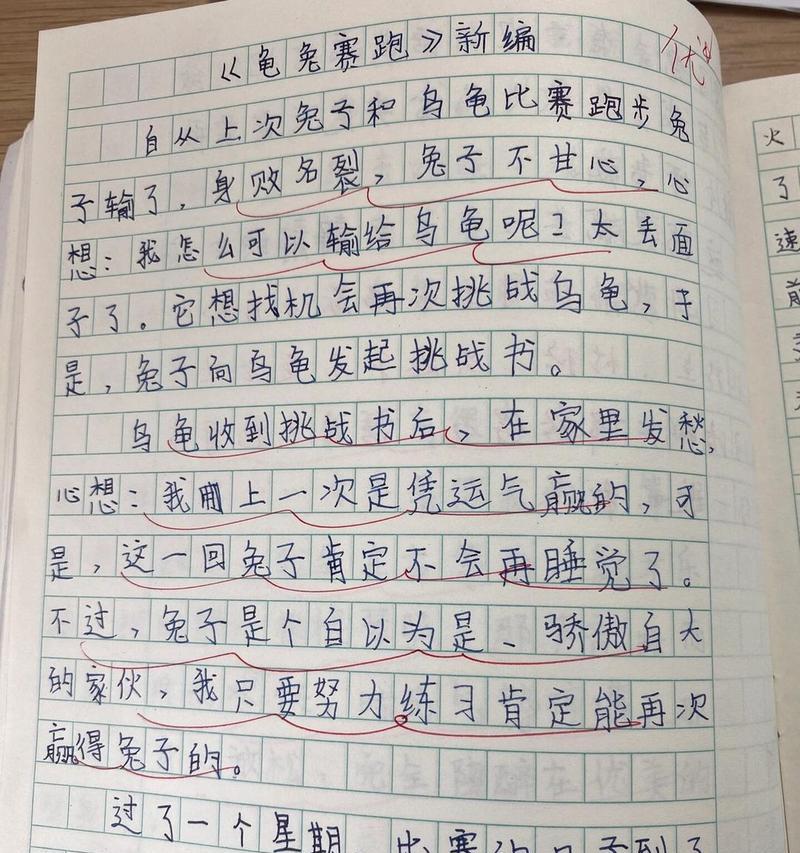 《龟兔赛跑》新编
优
自从上次兔子和乌龟比赛跑步兔
子输了，身败名裂，兔子不甘心，心
想：我怎么可以输给乌龟呢？太丢面
子了。它想找机会再次挑战乌龟，于
是，兔子向乌龟发起挑战书。
乌龟收到挑战书后，在家里发愁，
心想：我上一次是凭运气赢的，可
是，这一回兔子肯定不会再睡觉了。
不过，兔子是个自以为是、骄傲自大
的家伙，我只要努力练习肯定能再次
赢得兔子的。
过了一个星期，比赛的日子到了
火
了
速
前